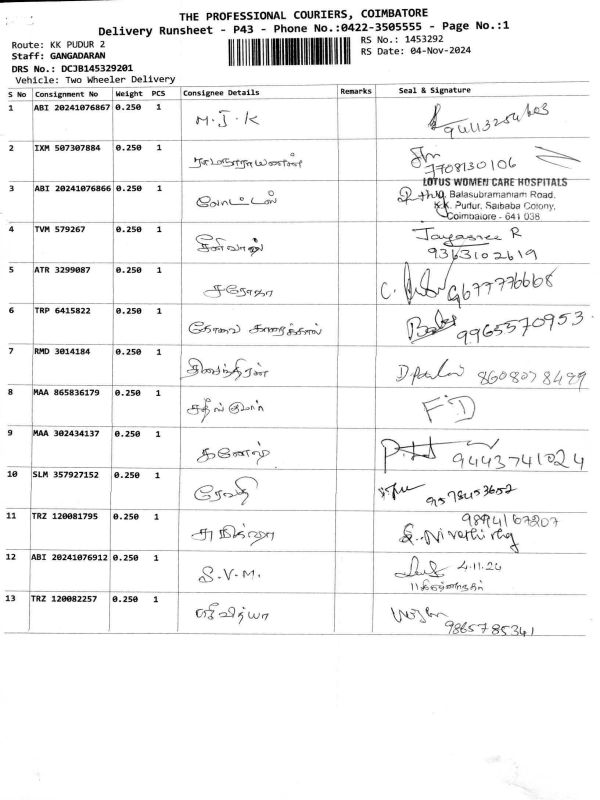 THE PROFESSIONAL COURIERS, COIMBATORE
Delivery Runsheet - P43 - Phone No.:0422-3505555 - Page No.:1
Route: KK PUDUR 2
RS No.: 1453292
Staff: GANGADARAN
RS Date: 04-Nov-2024
DRS No.: DCJB145329201
Vehicle: Two Wheeler Delivery
S No Consignment No Weight PCS Consignee Details Remarks Seal & Signature
1 ABI 20241076867 0.250 1 M.J.K
2 IXM 507307884 0.250 1 ராமநாராயணன் 7708130106
LOTUS WOMEN CARE HOSPITALS
3 ABI 20241076866 0.250 1 லோட்டஸ் Balasubramaniam Road,
K.K. Pudur, Saibaba Colony,
Coimbatore - 641 038
4 TVM 579267 0.250 1 சீனிவாஸ் Jayasree R
9363102619
5 ATR 3299087 0.250 1 சரோதா 9677776668
6 TRP 6415822 0.250 1 கோவை காரைக்கால் 9965570953
7 RMD 3014184 0.250 1 8608078499
8 MAA 865836179 0.250 1 F'D
9 MAA 302434137 0.250 1 கணேஷ் 9443741024
10 SLM 357927152 0.250 1 ரேவதி 9578453652
11 TRZ 120081795 0.250 1 9894167207
12 ABI 20241076912 0.250 1 S.V.M. 4.11.24
13 TRZ 120082257 0.250 1 ஸ்ரீவித்யா
9865785341